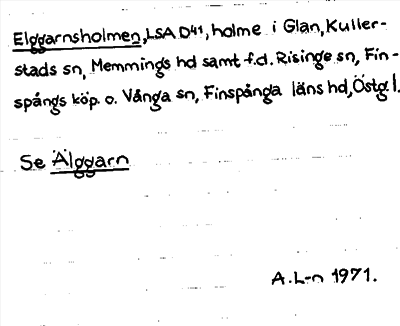 Elggarnsholmen, LSA D41, holme i Glan, Kuller-
stads sn, Memmings hd samt f.d. Risinge sn, Fin-
spångs köp. o. Vånga sn, Finspånga läns hd, Östg l.
Se Älggarn
A.L-n 1971.